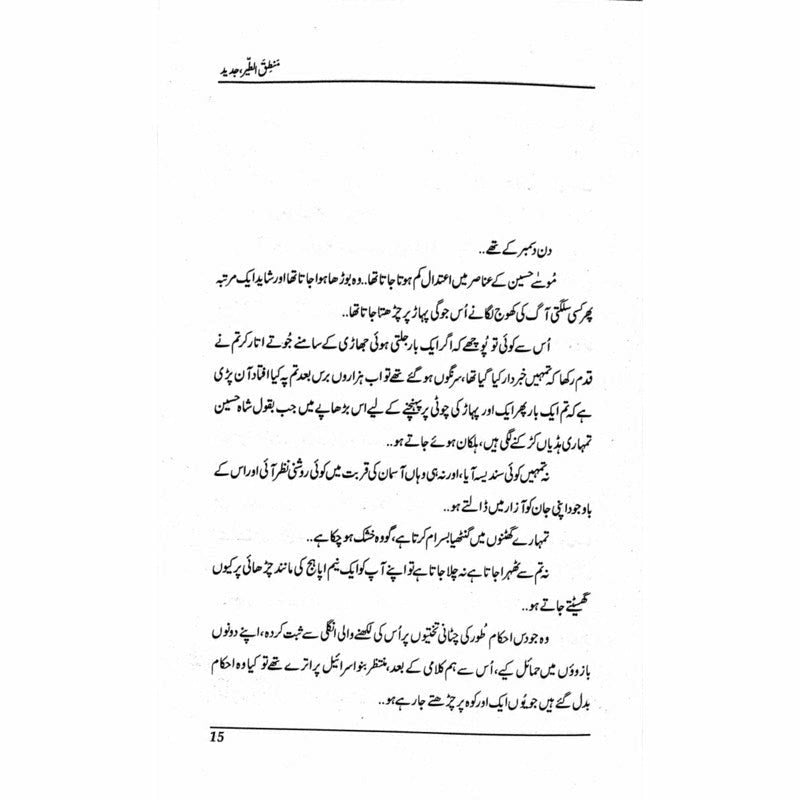 مَنطِقُ الطّیر، جدید
دن دسمبر کے تھے..
مُوسٰے حسین کے عناصر میں اعتدال کم ہوتا جاتا تھا.. وہ بوڑھا ہوا جاتا تھا اور شاید ایک مرتبہ
پھر کسی سلگتی آگ کی کھوج لگانے اُس جوگی پہاڑ پر چڑھتا جاتا تھا..
اُس سے کوئی تو پُوچھے کہ اگر ایک بار جلتی ہوئی جھاڑی کے سامنے جُوتے اتار کر تم نے
قدم رکھا کہ تمہیں خبردار کیا گیا تھا، سرنگوں ہو گئے تھے تو اب ہزاروں برس بعد تم پہ کیا افتاد آن پڑی
ہے کہ تم ایک بار پھر ایک اور پہاڑ کی چوٹی پر پہنچنے کے لیے اس بڑھاپے میں جب بقول شاہ حسین
تمہاری ہڈیاں کڑکنے لگی ہیں، ہلکان ہوئے جاتے ہو..
نہ تمہیں کوئی سندیسہ آیا، اور نہ ہی وہاں آسمان کی قربت میں کوئی روشنی نظر آئی اور اس کے
باوجود اپنی جان کو آزار میں ڈالتے ہو..
تمہارے گھٹنوں میں گنٹھیا بسرام کرتا ہے، گودہ خشک ہو چکا ہے..
نہ تم سے ٹھہرا جاتا ہے نہ چلا جاتا ہے تو اپنے آپ کو ایک نیم اپاہج کی مانند چڑھائی پر کیوں
گھسیٹتے جاتے ہو..
وہ جو دس احکام طُور کی چٹانی تختیوں پر اُس کی لکھنے والی انگلی سے ثبت کردہ، اپنے دونوں
بازوؤں میں حمائل کیے، اُس سے ہم کلامی کے بعد، منتظر بنو اسرائیل پر اترے تھے تو کیا وہ احکام
بدل گئے ہیں جو یُوں ایک اور کوہ پر چڑھتے جا رہے ہو..
15